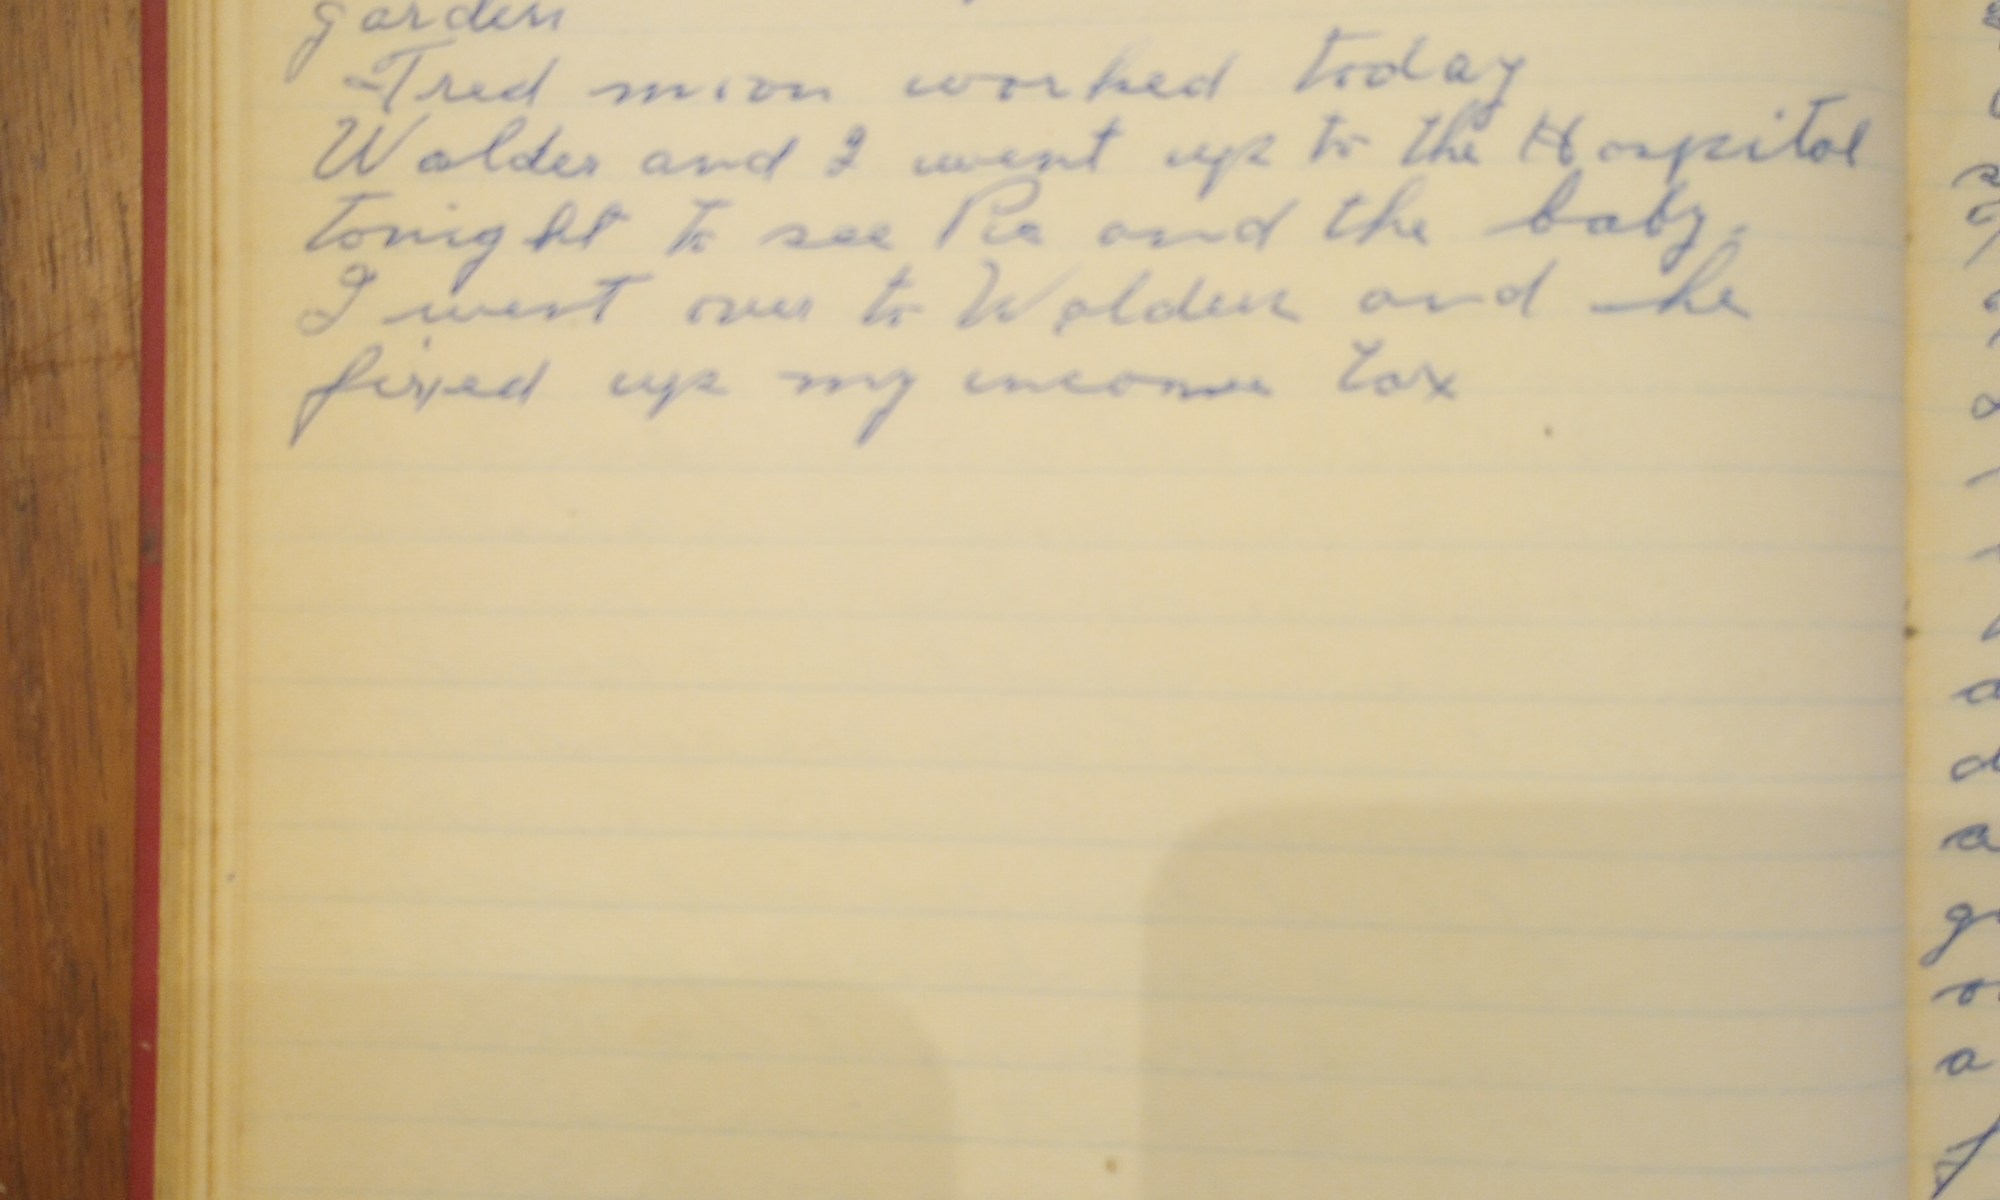 garden
Fred mion worked today
Walder and I went up to the Hospital
tonight to see Pie and the baby.
I went over to Walders and he
fixed up my income tax